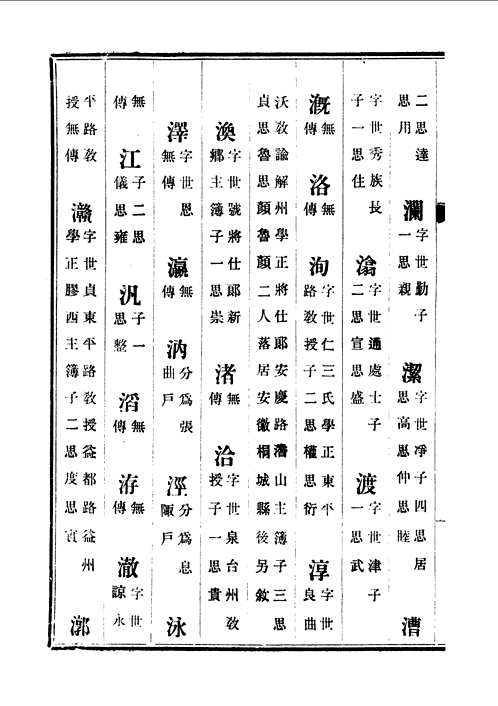 二思達思用 瀾 字世勳子一思親 潔 字世凈子四思居思高思仲思睦 漕
字世秀族長子一思住 滄 字世通處士子二思宣思盛 渡 字世津子一思武
溉 無傳 洛 無傳 洵 字世仁三氏學正東平路敎授子二思權思衍 淳 字世良曲
沃敎諭解州學正將仕郎安慶路潛山主簿子三思貞思魯思顏魯顏二人落居安徽桐城縣後另敘
渙 字世號將仕郎新鄉主簿子一思崇 渚 無傳 洽 字世泉台州敎授子一思貴
澤 字世恩無傳 瀛 無傳 汭 分爲張曲戶 涇 分爲息陬戶 泳
無傳 江 子二思儀思雍 汎 子一思整 滔 無傳 洊 無傳 澈 字世諒永
平路敎授無傳 灝 字世貞東平路敎授益都路益州學正膠西主簿子二思度思實 漷